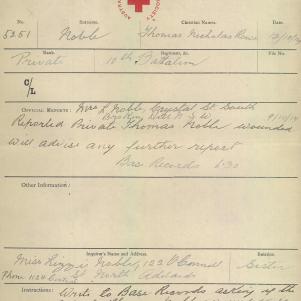 No.
Surname.
Christian Names.
5251
Noble
Thomas Nicholas
Rank.
Regiment, &c.
File No.
Private
10th Battalion
C/L
OFFICIAL REPORTS: Mrs L Noble, Crystal St South
Broken Hill N.S.W. 9/10/17
Reported Private Thomas Noble wounded
will advise any further report
Base Records 630
Other Information:
Inquirer's Name and Address.
Relation.
Miss Lizzie Noble, 122 O'Connell
Sister
Phone 1124 Central St North Adelaide
Instructions: Write to Base Records asking if the